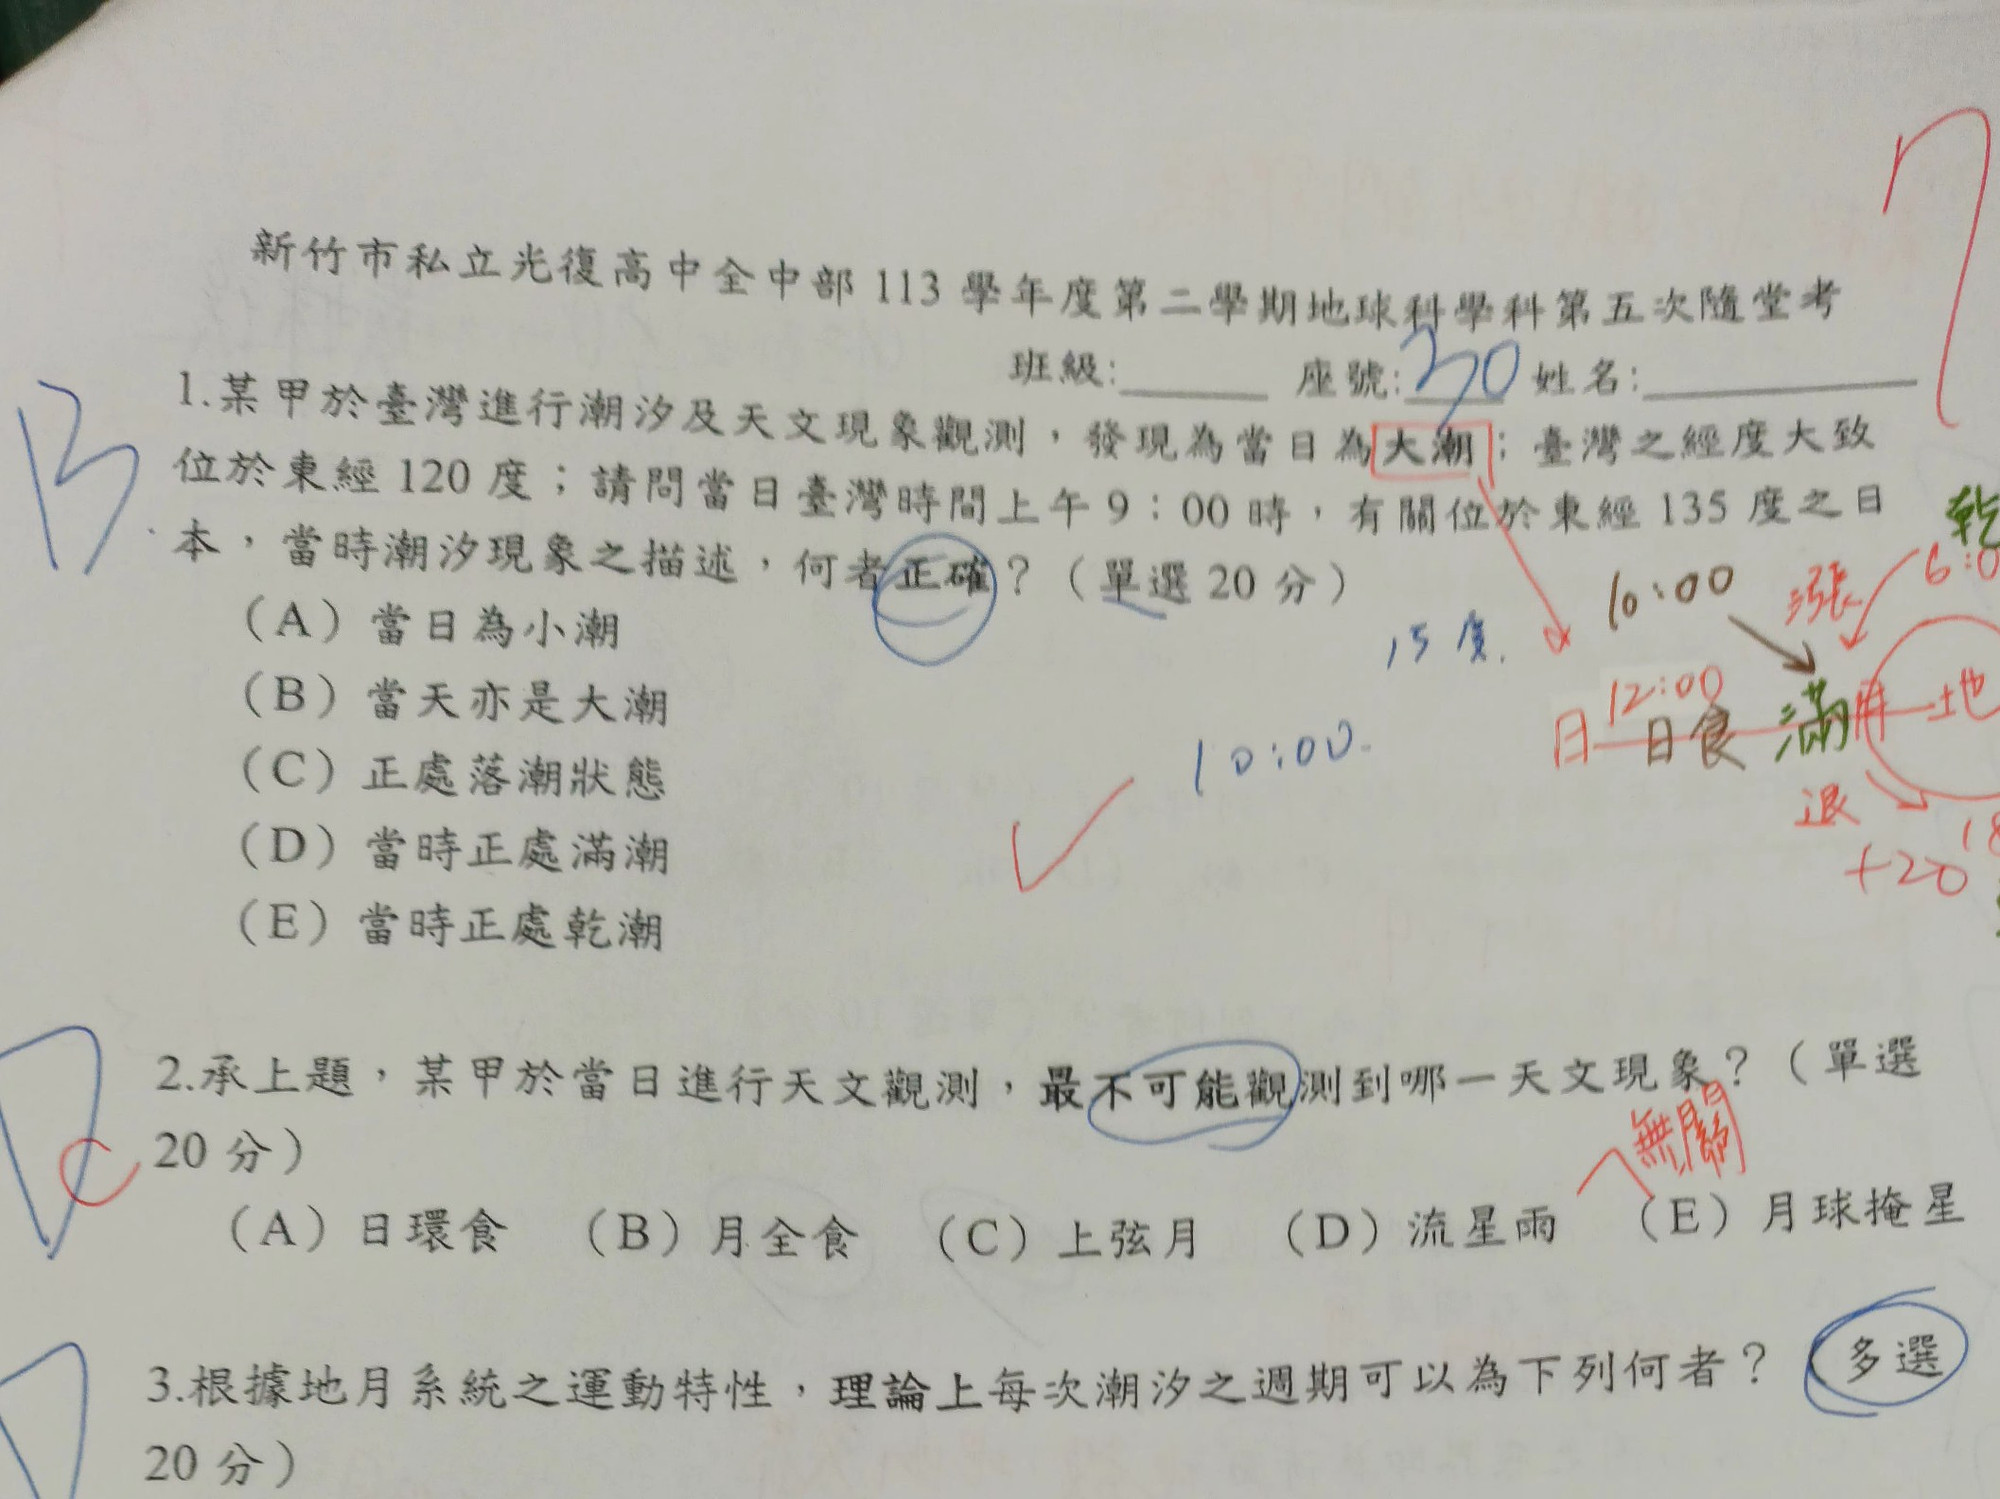 新竹市私立光復高中全中部 113 學年度第二學期地球科學科第五次隨堂考
班級:______ 座號:30 姓名:______
B
1.某甲於臺灣進行潮汐及天文現象觀測，發現為當日為大潮；臺灣之經度大致
位於東經 120 度；請問當日臺灣時間上午 9：00 時，有關位於東經 135 度之日
本，當時潮汐現象之描述，何者正確？（單選 20 分）
（A）當日為小潮
（B）當天亦是大潮
（C）正處落潮狀態
（D）當時正處滿潮
（E）當時正處乾潮
15度.
10:00.
乾
6:0
10:00
漲
12:00
日 日食 滿 月 地
退
+20
18
2.承上題，某甲於當日進行天文觀測，最不可能觀測到哪一天文現象？（單選
20 分）
C
無關
（A）日環食 （B）月全食 （C）上弦月 （D）流星雨 （E）月球掩星
3.根據地月系統之運動特性，理論上每次潮汐之週期可以為下列何者？（多選
20 分）